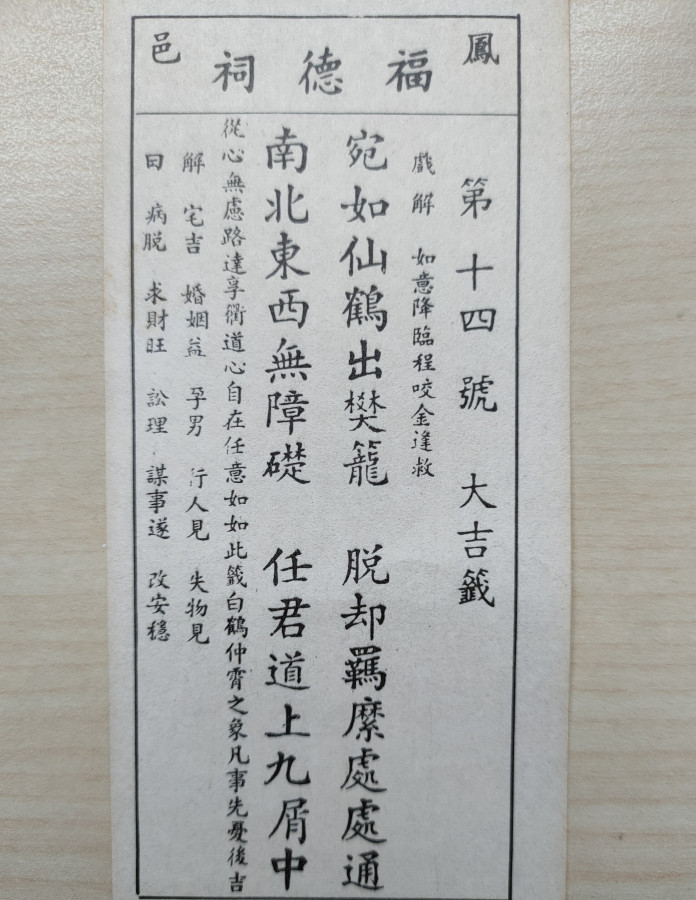 鳳邑
福德祠
第十四號 大吉籤
戲解 如意降臨程咬金逢救
宛如仙鶴出樊籠 脱却羈縻處處通
南北東西無障礎 任君道上九屑中
從心無慮路達享衢道心自在任意如如此籤白鶴仲霄之象凡事先憂後吉
解 宅吉 婚姻益 孕男 行人見 失物見
曰 病脱 求財旺 訟理 謀事遂 改安穩